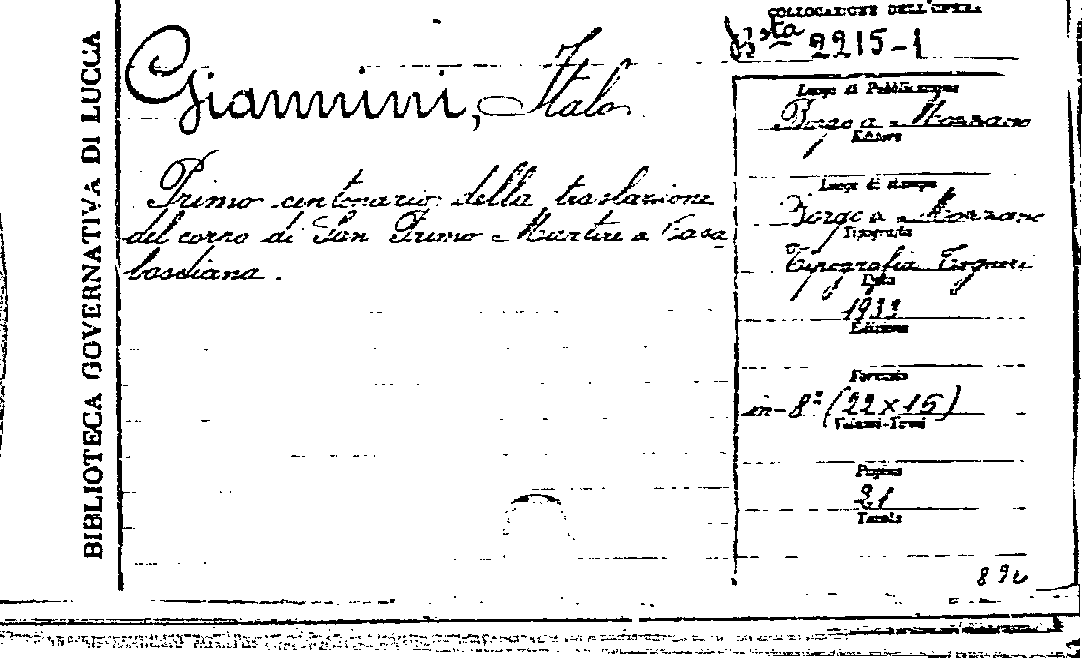 BIBLIOTECA GOVERNATIVA DI LUCCA
COLLOCAZIONE DELL'OPERA
Bsta 2215-1
Giannini, Italo
Primo centenario della traslazione
del corpo di San Primo Martire a Casa
basciana.
Luogo di Pubblicazione
Borgo a Mozzano
Editore
Luogo di stampa
Borgo a Mozzano
Tipografia
Tipografia Vannini
Data
1933
Edizione
Formato
in-8° (22x15)
Volumi-Tomi
Pagine
21
Tavole